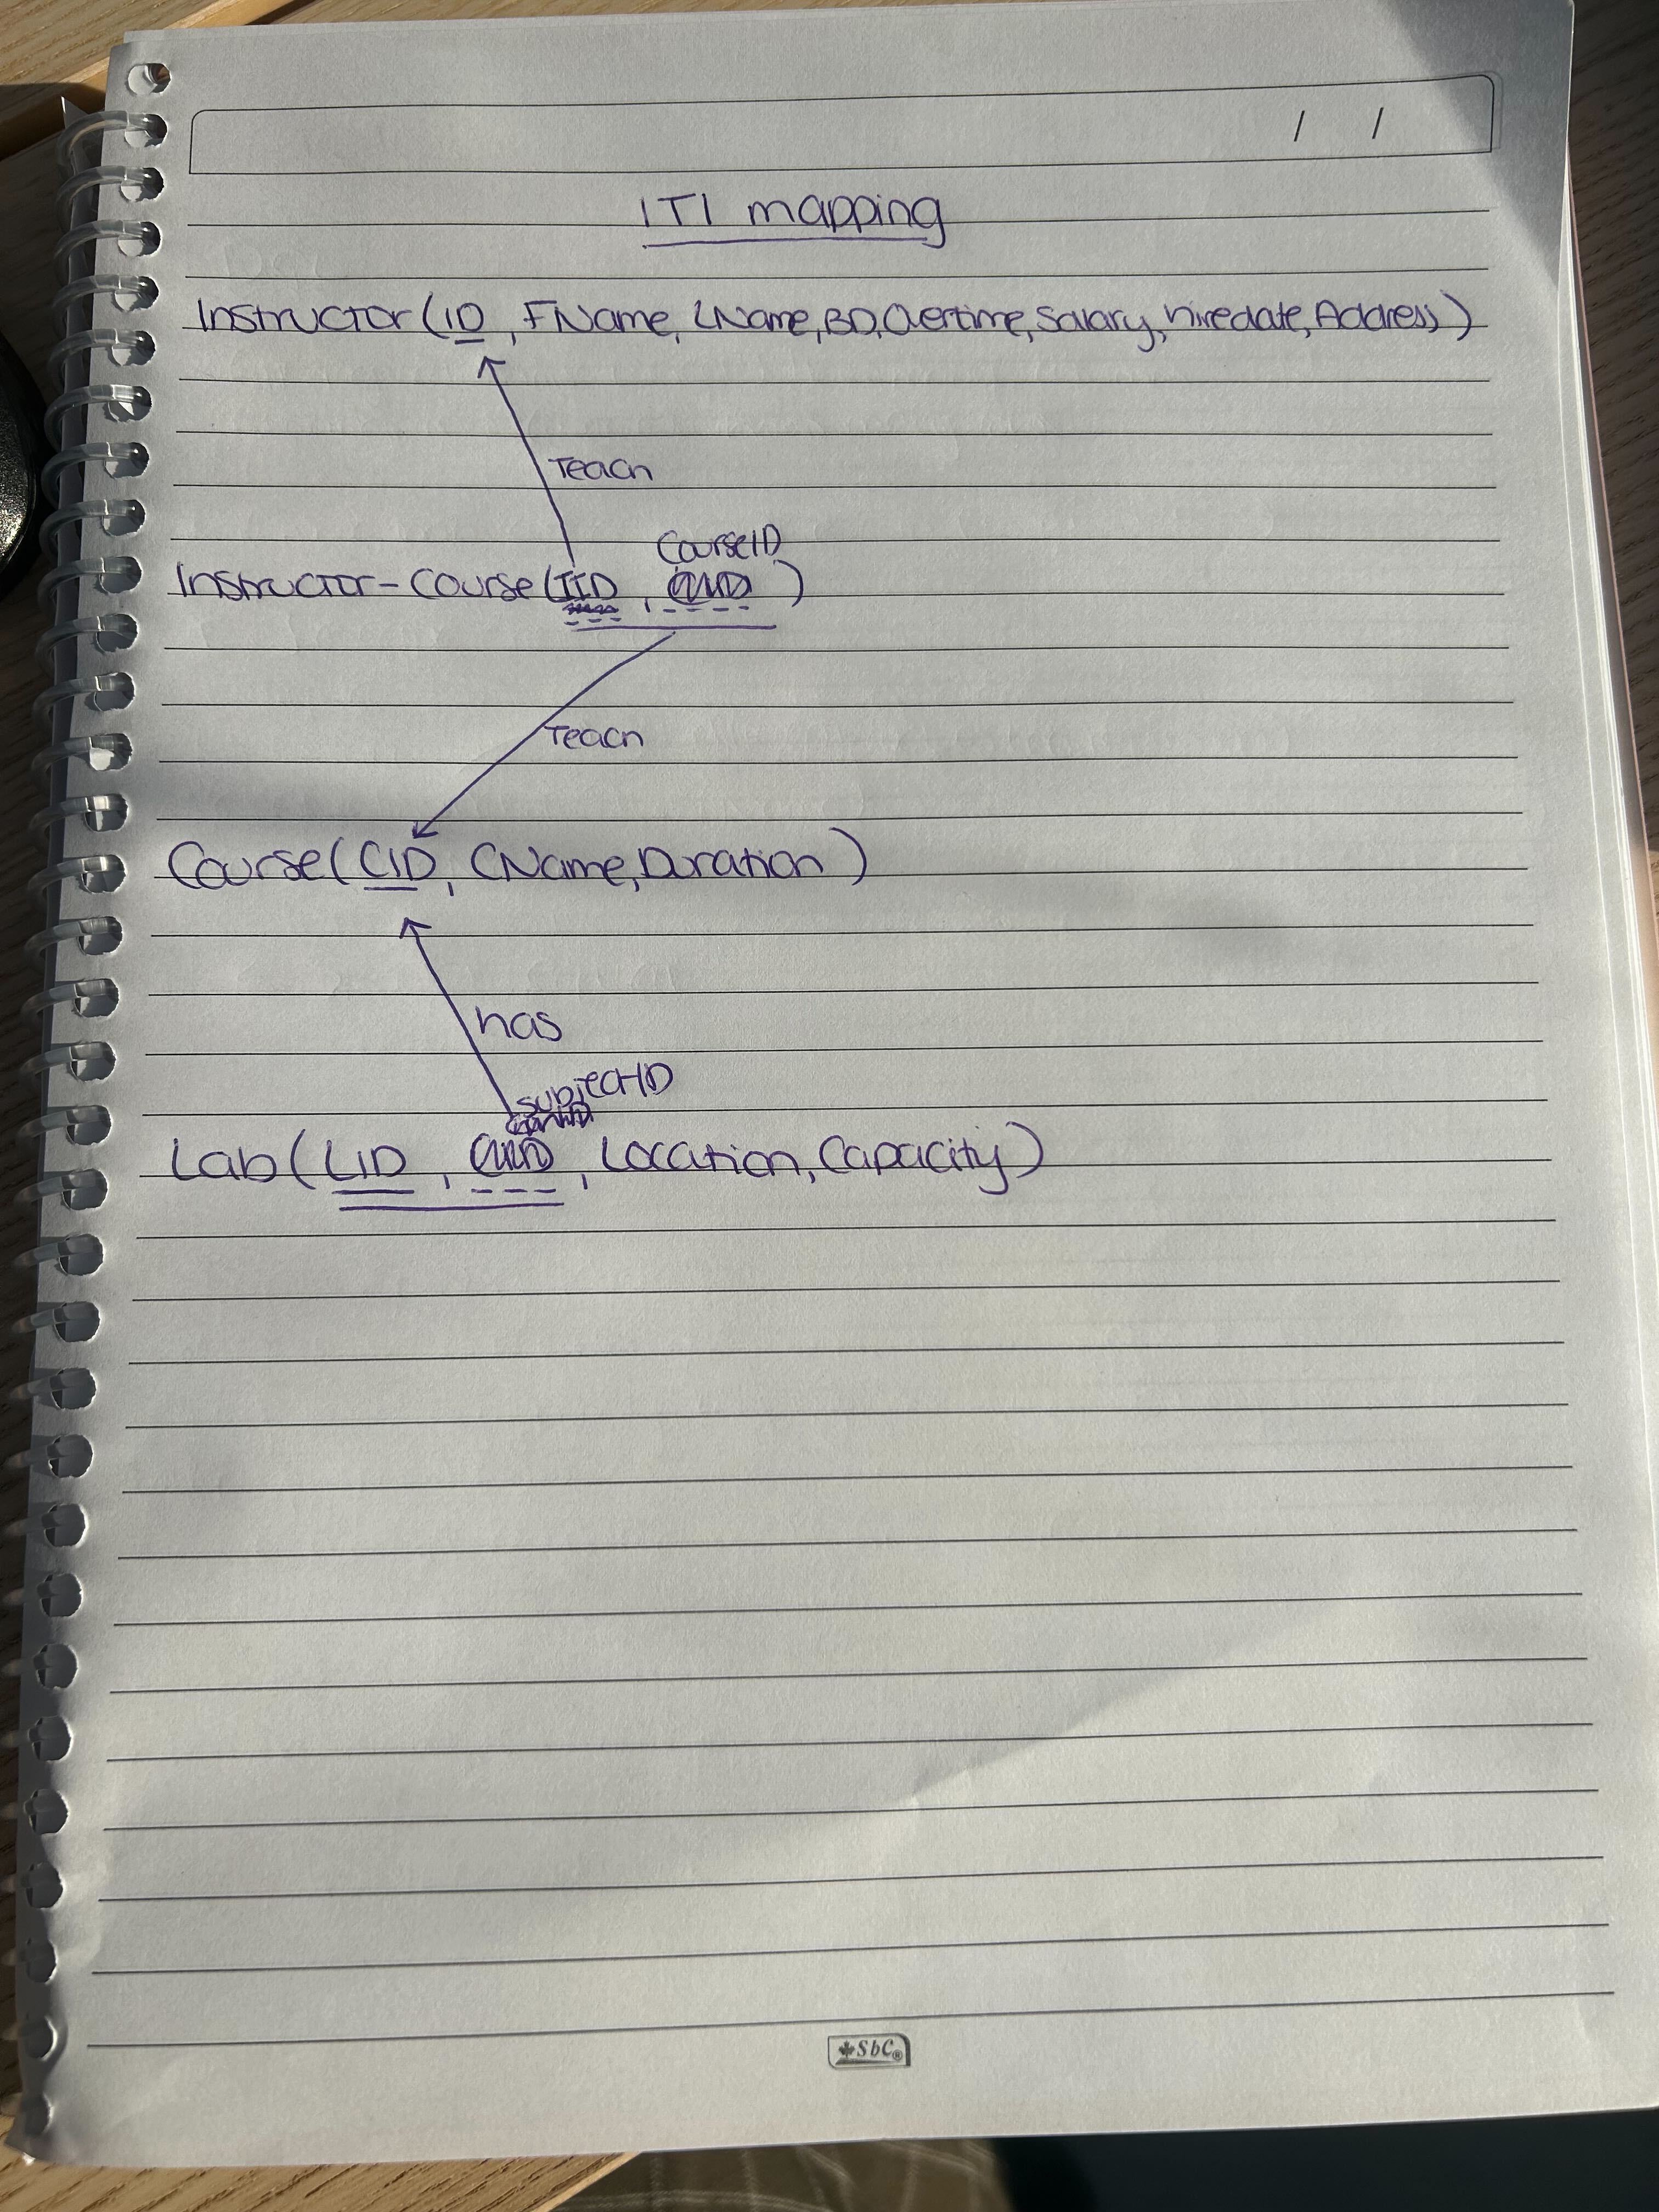 / /
ITI mapping
Instructor (ID, FName, LName, BD, Overtime, Salary, hiredate, Address)
Teach
CourseID
Instructor-Course (IID, )
Teach
Course (CID, CName, Duration)
has
subjectID
Lab (LID, , Location, Capacity)
SbC®